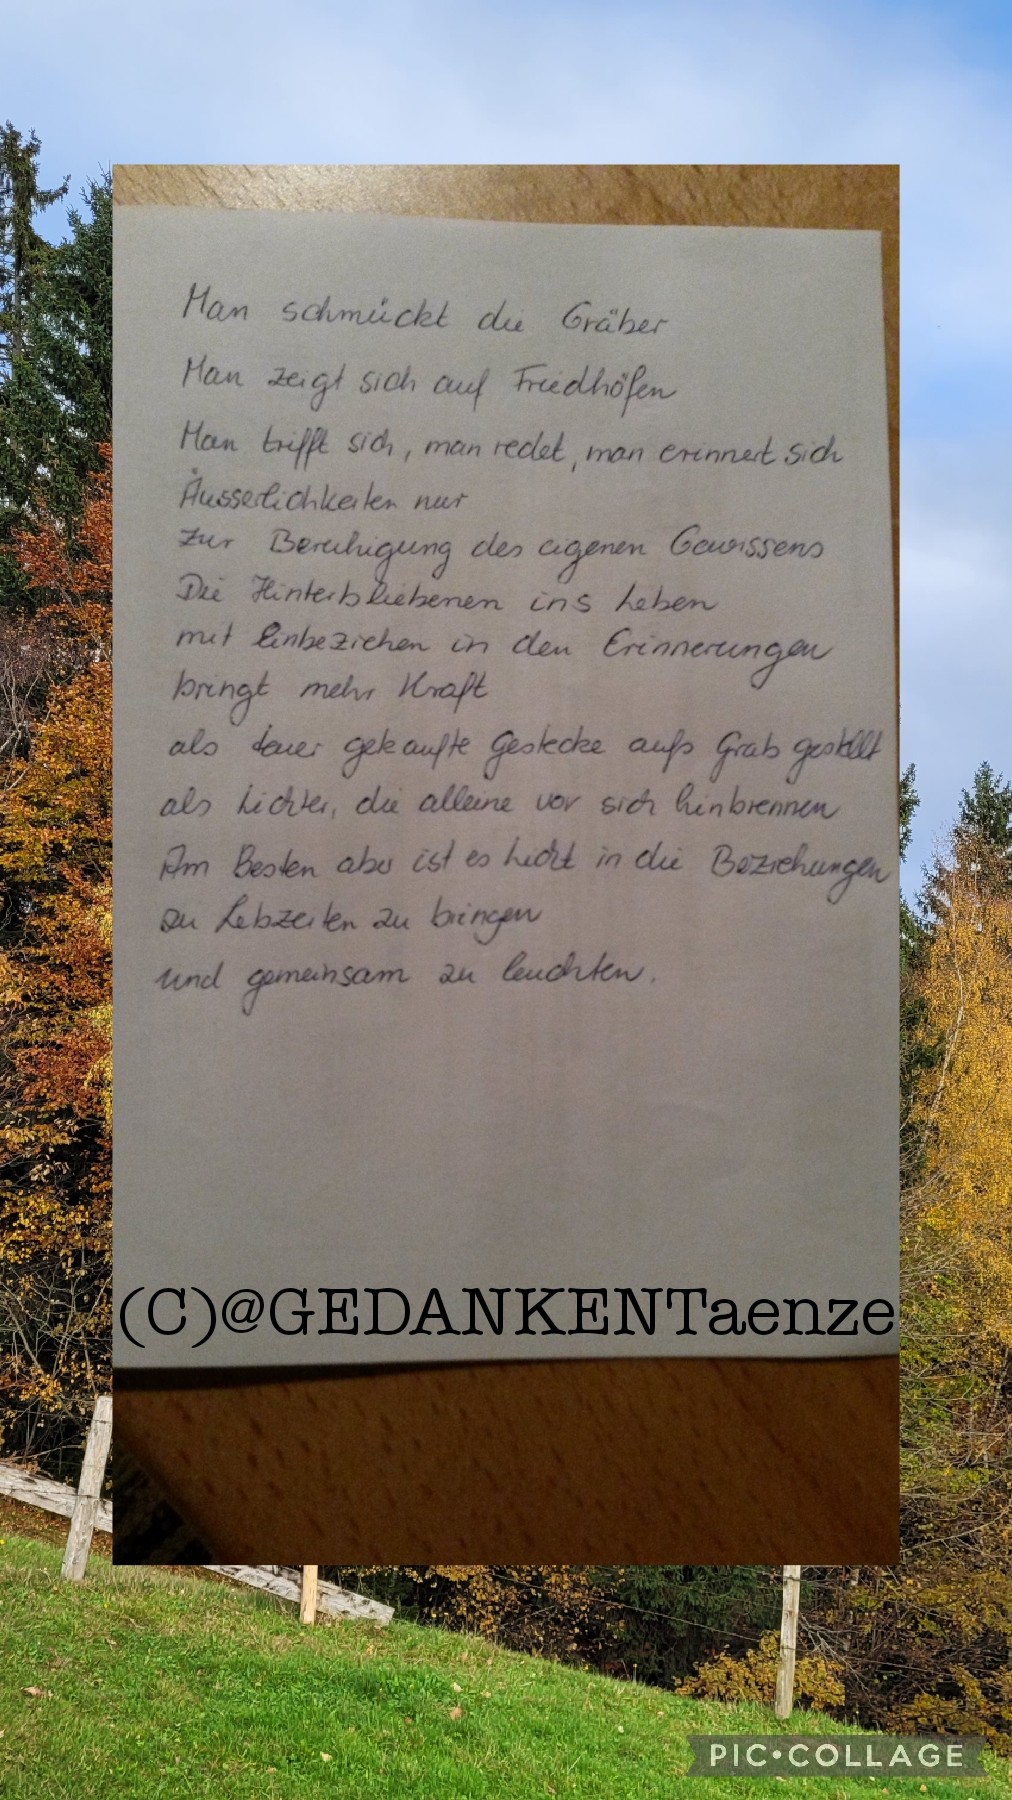 Man schmückt die Gräber
Man zeigt sich auf Friedhöfen
Man trifft sich, man redet, man erinnert sich
Äusserlichkeiten nur
Zur Beruhigung des eigenen Gewissens
Die Hinterbliebenen ins Leben
mit Einbeziehen in den Erinnerungen
bringt mehr Kraft
als teuer gekaufte Gestecke aufs Grab gestellt
als Lichter, die alleine vor sich hinbrennen
Am Besten aber ist es Licht in die Beziehungen
zu Lebzeiten zu bringen
und gemeinsam zu leuchten.
(C)@GEDANKENTaenze
PIC•COLLAGE